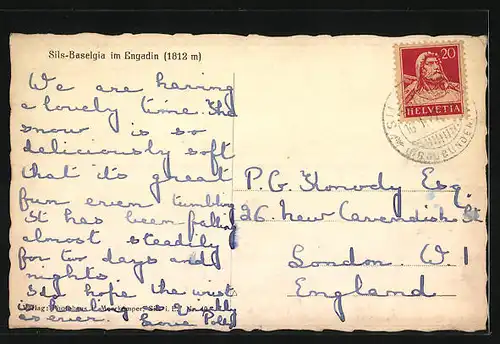 Sils-Baselgia im Engadin (1812 m)
We are having
a lovely time. The
snow is so
deliciously soft
that it's great
fun even tumbling
It has been falling
almost steadily
for two days and
nights
I do hope the wrist
is healing as quickly
as ever. Love Polly
20
HELVETIA
P. G. Konody Esq.
26. New Cavendish St
London. W. 1
England